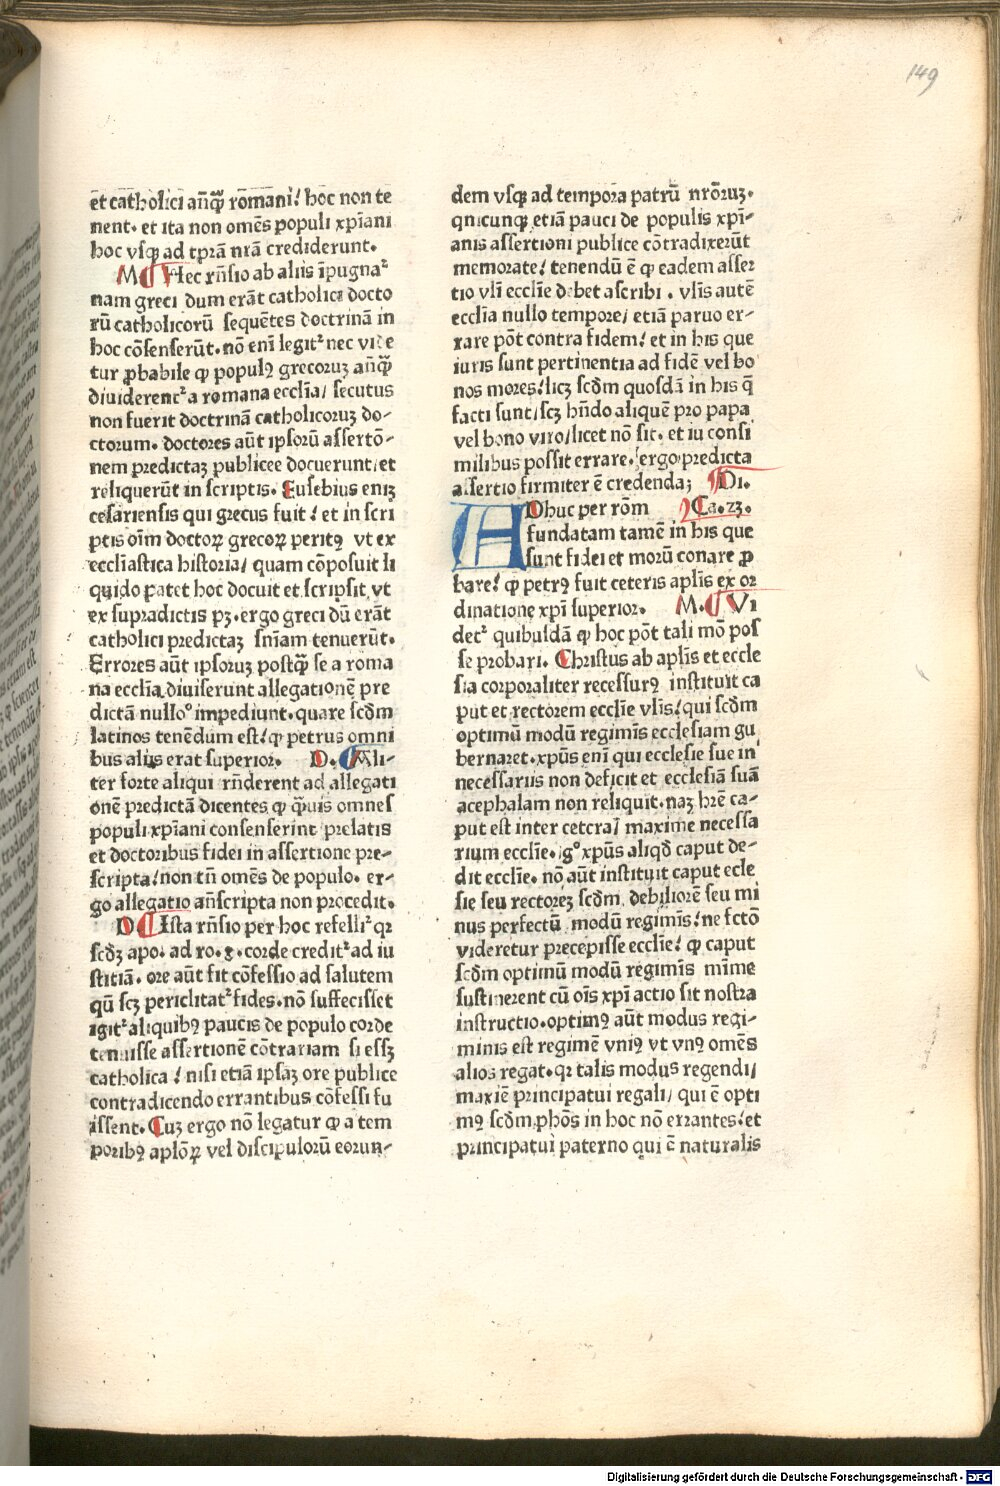 149
et catholici anq̃ꝫ romani! hoc non te
nent. et ita non omẽs populi xp̃iani
hoc vsqꝫ ad tp̃ra nr̃a crediderunt.
M ¶ Hec rñsio ab aliis ĩpugnaᷣ
nam greci dum erãt catholici docto
rũ catholicorũ sequẽtes doctrinã in
hoc cõsenserũt. nõ eni legitᷣ nec vide
tur ꝓbabile ꝙ populꝰ grecoruꝫ anq̃ꝫ
diuiderencᷣ a romana ecclĩa/ secutus
non fuerit doctrinã catholicoruꝫ do-
ctorum. doctores aũt ipsorũ assertõ-
nem predictaꝫ publicee docuerunt/et
reliquerũt in scriptis. Eusebius eniꝫ
cesariensis qui grecus fuit! et in scri
ptis oĩm doctoꝝ grecoꝝ peritꝰ vt ex
ecclĩastica historia/ quam cõposuit li
quido patet hoc docuit et scripsit vt
ex supradictis pꝫ. ergo greci dũ erãt
catholici predictaꝫ snĩam tenuerũt.
Errores aũt ipsoruꝫ postqꝫ̃ se a roma
na ecclĩa diuiserunt allegationẽ pre
dictã nulloᵒ impediunt. quare scdm̃
latinos tenẽdum est! ꝙ petrus omni
bus aliis erat superior. D. ¶ Ali-
ter forte aliqui rñderent ad allegati
onẽ predictã dicentes ꝙ q̃uis omnes
populi xp̃iani consenserint prelatis
et doctoribus fidei in assertione pre-
scripta! non tñ omẽs de populo. er-
go allegatio añscripta non procedit.
D ¶ Ista rñsio per hoc refelliᷣ qꝛ
scdꝫ apo. ad ro. x. corde creditᷣ ad iu
stitiã. ore aũt fit cõfessio ad salutem
qũ scꝫ periclitatᷣ fides. nõ suffecisset
igitᷣ aliquibꝰ paucis de populo corde
tenuisse assertionẽ cõtrariam si essꝫ
catholica! nisi etiã ipsaꝫ ore publice
contradicendo errantibus cõfessi fu
issent. Cuꝫ ergo nõ legatur ꝙ a tem
poribꝰ aplõꝝ vel discipulorũ eorun-
dem vsqꝫ ad tempora patrũ nr̃oruꝫ.
quicunqꝫ etiã pauci de populis xp̃i-
anis assertioni publice cõtradixerũt
memorate! tenendũ ẽ ꝙ eadem asser
tio vlĩ ecclĩe debet ascribi. vlĩs autẽ
ecclĩa nullo tempore/ etiã paruo er-
rare põt contra fidem! et in his que
iuris sunt pertinentia ad fidẽ vel bo
nos mores! licꝫ scdm̃ quosdã in his q̃
facti sunt/ scꝫ hñdo aliquẽ pro papa
vel bono viro/ licet nõ sit. et iu consi
milibus possit errare. ergo predicta
assertio firmiter ẽ credenda; ¶ Di.
ADhuc per rõm ¶ Ca.23.
fundatam tamẽ in his que
sunt fidei et morũ conare ꝓ
bare! ꝙ petrꝰ fuit ceteris aplĩs ex or
dinatione xp̃i superior. M. ¶ Vi
detᷣ quibusdã ꝙ hoc põt tali mõ pos
se probari. Christus ab aplĩs et eccle
sia corporaliter recessurꝰ instituit ca
put et rectorem ecclĩe vlĩs! qui scdm̃
optimũ modũ regiminis ecclesiam gu
bernaret. xp̃us eni qui ecclesie sue in
necessariis non deficit et ecclesiã suã
acephalam non reliquit. naꝫ hr̃e ca-
put est inter cetera/ maxime necessa
rium ecclĩe. gᵒ xp̃us aliqd̃ caput de-
dit ecclĩe. nõ aũt instituit caput ecle
sie seu rectoreꝫ scdm̃ debiliorẽ seu mi
nus perfectũ modũ regimĩs! ne fctõ
videretur precepisse ecclĩe! ꝙ caput
scdm̃ optimũ modũ regimĩs mĩme
sustinerent cũ oĩs xp̃i actio sit nostra
instructio. optimꝰ aũt modus regi-
minis est regimẽ vniꝰ vt vnꝰ omẽs
alios regat. qꝛ talis modus regendi/
maxiẽ principatui regali/ qui ẽ opti
mꝰ scdm̃ phõs in hoc nõ errantes! et
principatui paterno qui ẽ naturalis
Digitalisierung gefördert durch die Deutsche Forschungsgemeinschaft - DFG